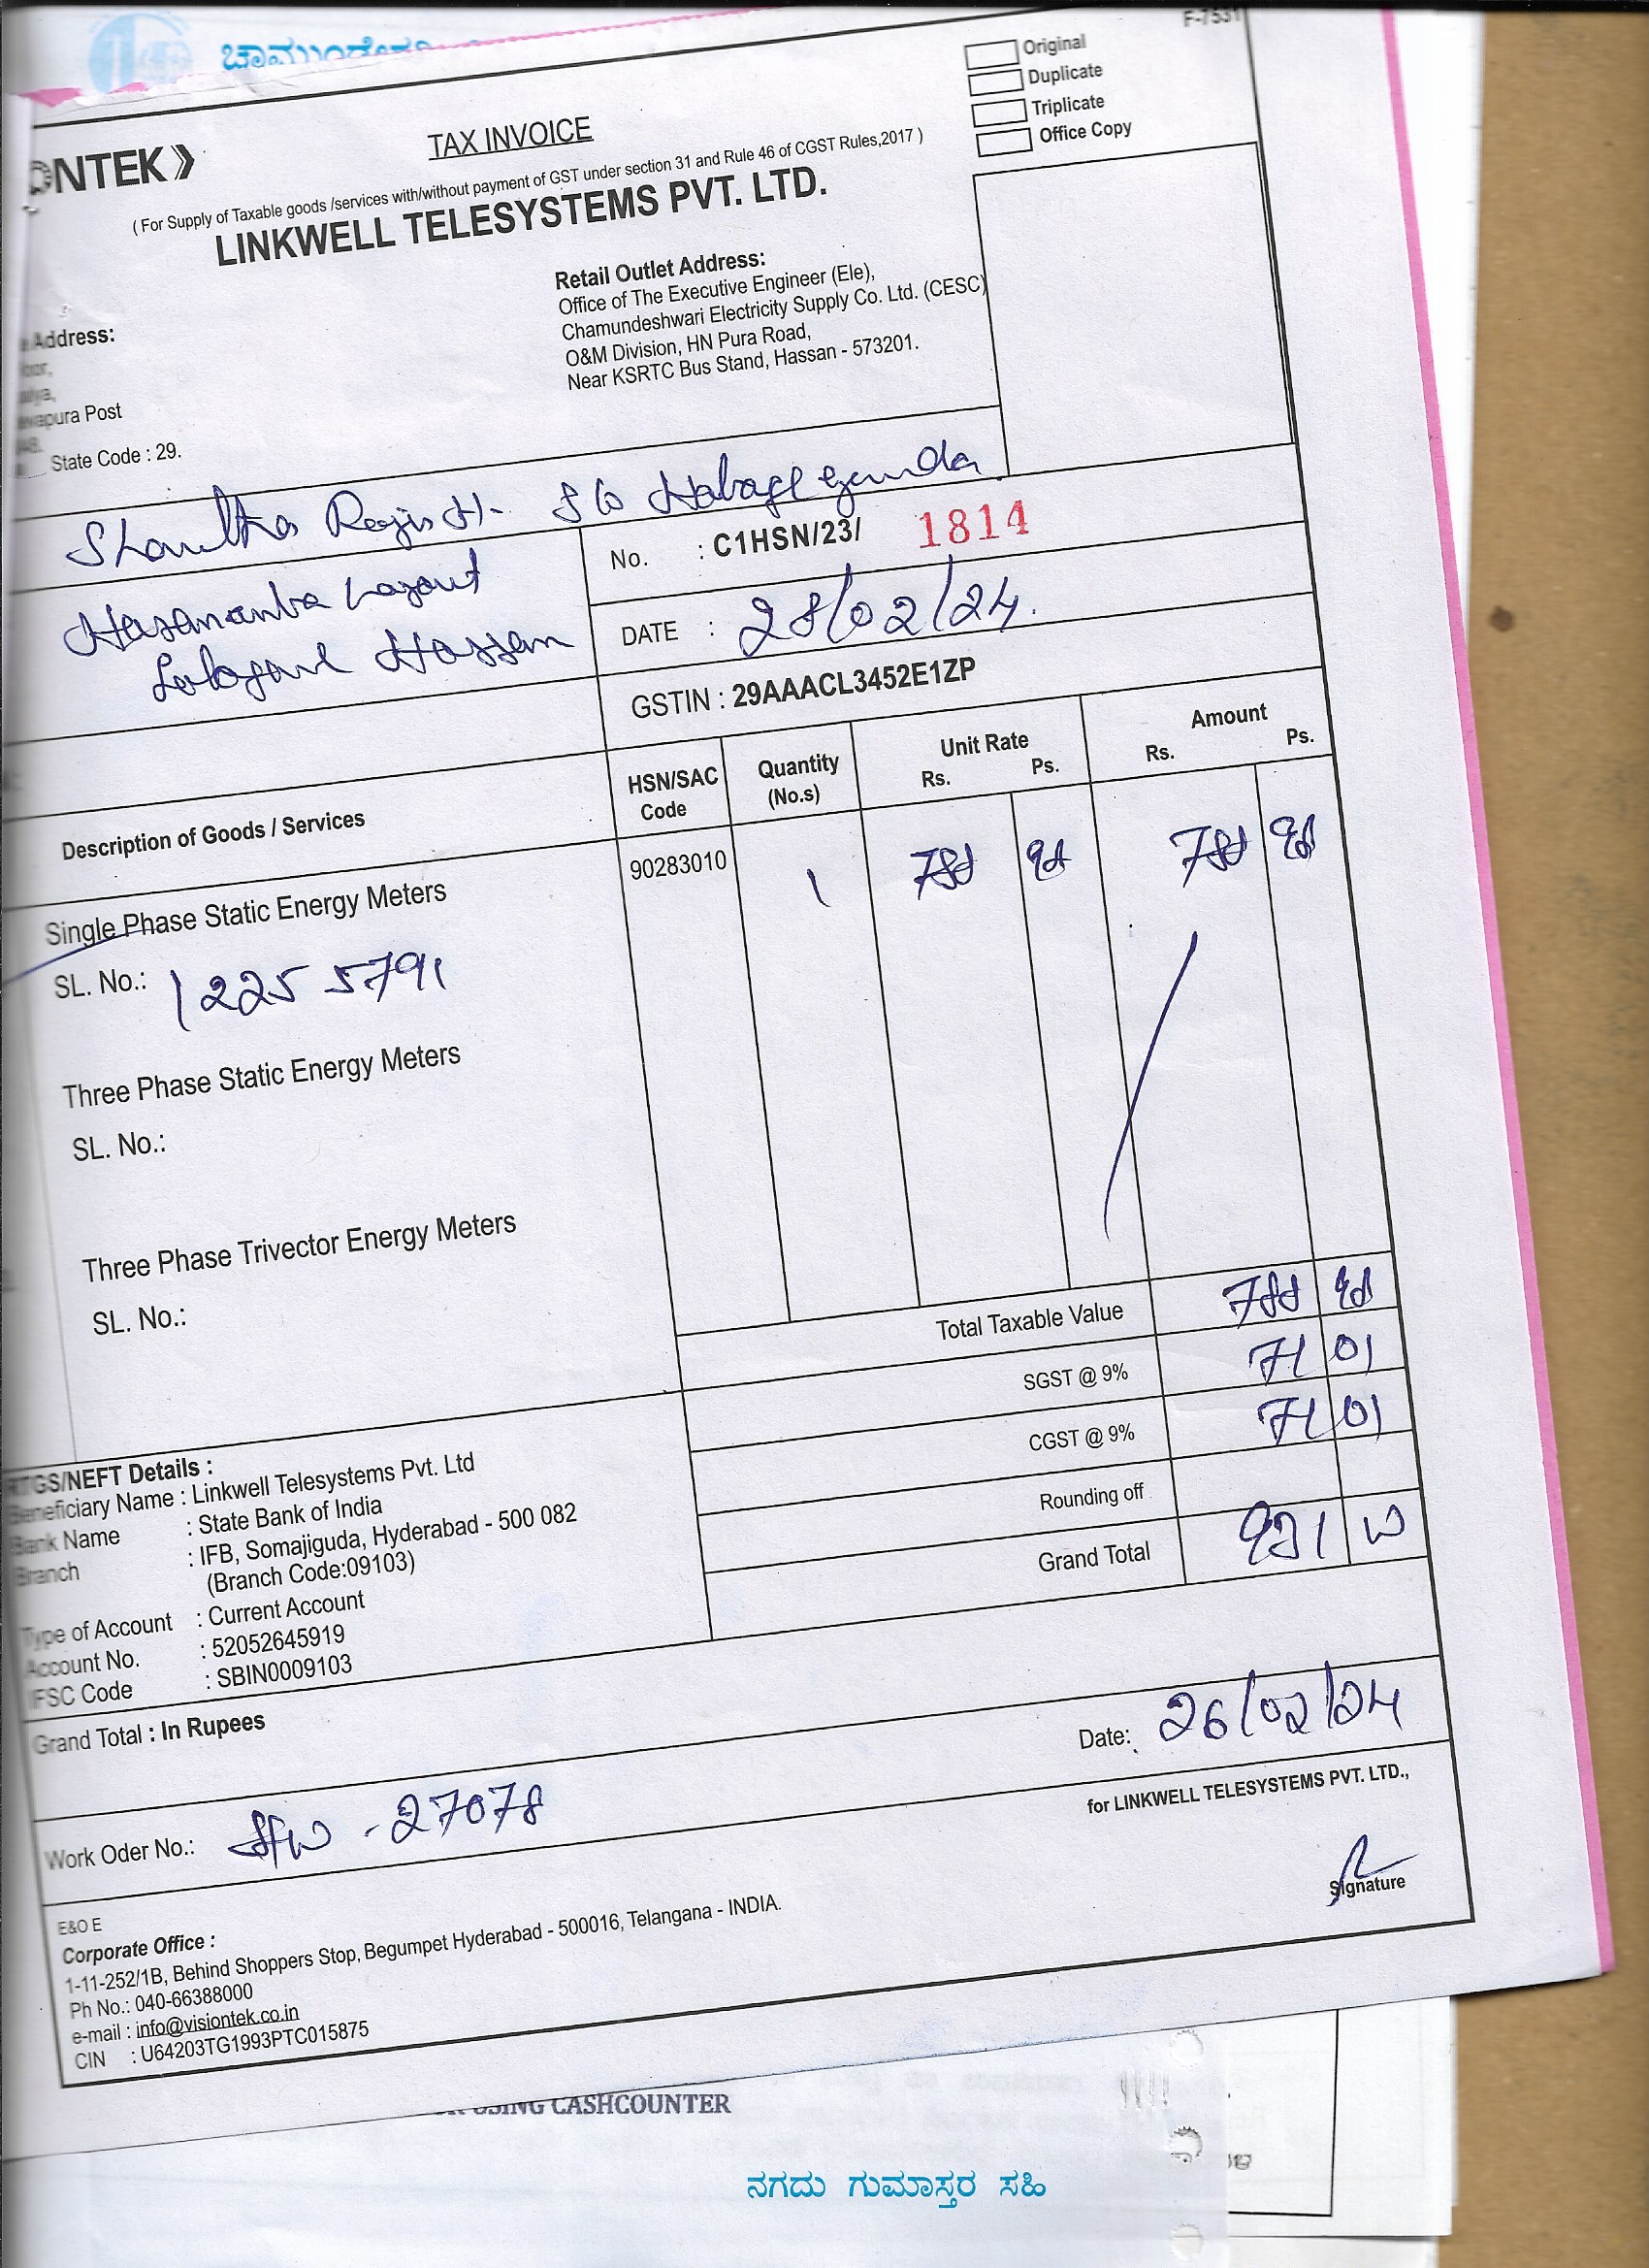 F-7531
Original
Duplicate
Triplicate
Office Copy
ONTEK
TAX INVOICE
( For Supply of Taxable goods /services with/without payment of GST under section 31 and Rule 46 of CGST Rules,2017 )
LINKWELL TELESYSTEMS PVT. LTD.
Address:
Post
State Code : 29.
Retail Outlet Address:
Office of The Executive Engineer (Ele),
Chamundeshwari Electricity Supply Co. Ltd. (CESC)
O&M Division, HN Pura Road,
Near KSRTC Bus Stand, Hassan - 573201.
H. S/o
Layout
Hassan
No. : C1HSN/23/ 1814
DATE : 28/02/24.
GSTIN : 29AAACL3452E1ZP
Description of Goods / Services
HSN/SAC Code
Quantity (No.s)
Unit Rate Rs. Ps.
Amount Rs. Ps.
Single Phase Static Energy Meters 90283010 1
SL. No.: 12255791
Three Phase Static Energy Meters
SL. No.:
Three Phase Trivector Energy Meters
SL. No.:
Total Taxable Value
SGST @ 9% 71 01
CGST @ 9% 71 01
Rounding off
Grand Total 931
RTGS/NEFT Details :
Beneficiary Name : Linkwell Telesystems Pvt. Ltd
Bank Name : State Bank of India
Branch : IFB, Somajiguda, Hyderabad - 500 082
(Branch Code:09103)
Type of Account : Current Account
Account No. : 52052645919
IFSC Code : SBIN0009103
Grand Total : In Rupees
Date: 26/02/24
Work Oder No.: - 27078
for LINKWELL TELESYSTEMS PVT. LTD.,
Signature
E&O E
Corporate Office :
1-11-252/1B, Behind Shoppers Stop, Begumpet Hyderabad - 500016, Telangana - INDIA.
Ph No.: 040-66388000
e-mail : info@visiontek.co.in
CIN : U64203TG1993PTC015875
USING CASHCOUNTER
ನಗದು ಗುಮಾಸ್ತರ ಸಹಿ